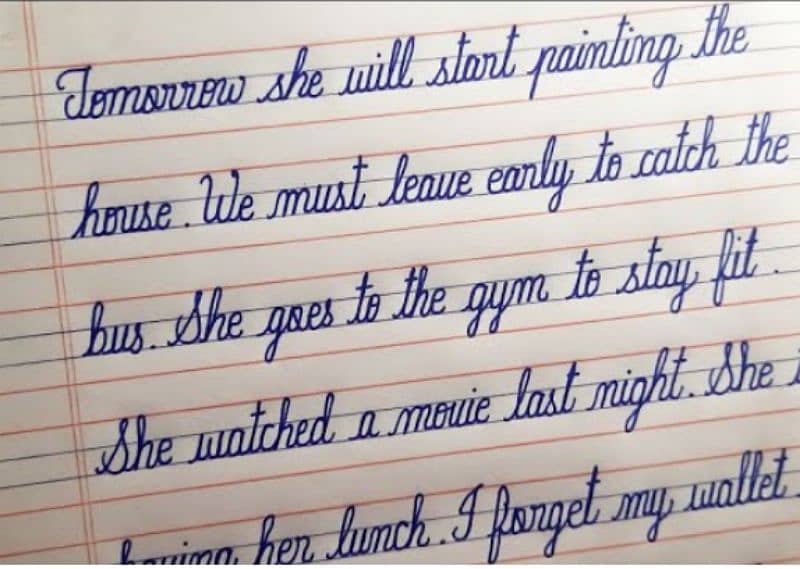 Tomorrow she will start painting the
house. We must leave early to catch the
bus. She goes to the gym to stay fit.
She watched a movie last night. She
having her lunch. I forget my wallet